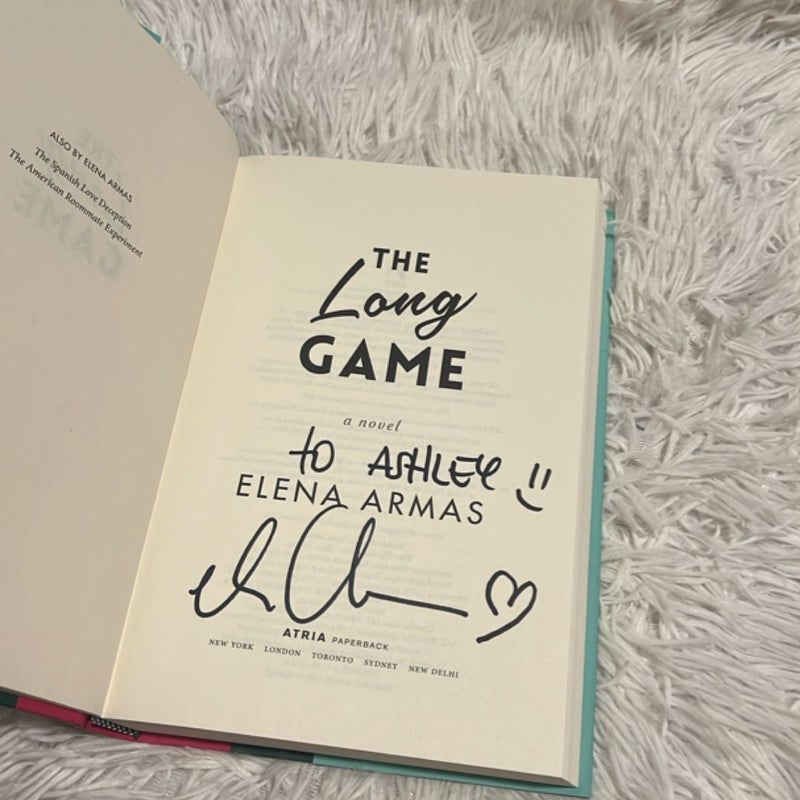 ALSO BY ELENA ARMAS
The Spanish Love Deception
The American Roommate Experiment
THE
Long
GAME
a novel
to ASHLEY
ELENA ARMAS
ATRIA PAPERBACK
NEW YORK LONDON TORONTO SYDNEY NEW DELHI